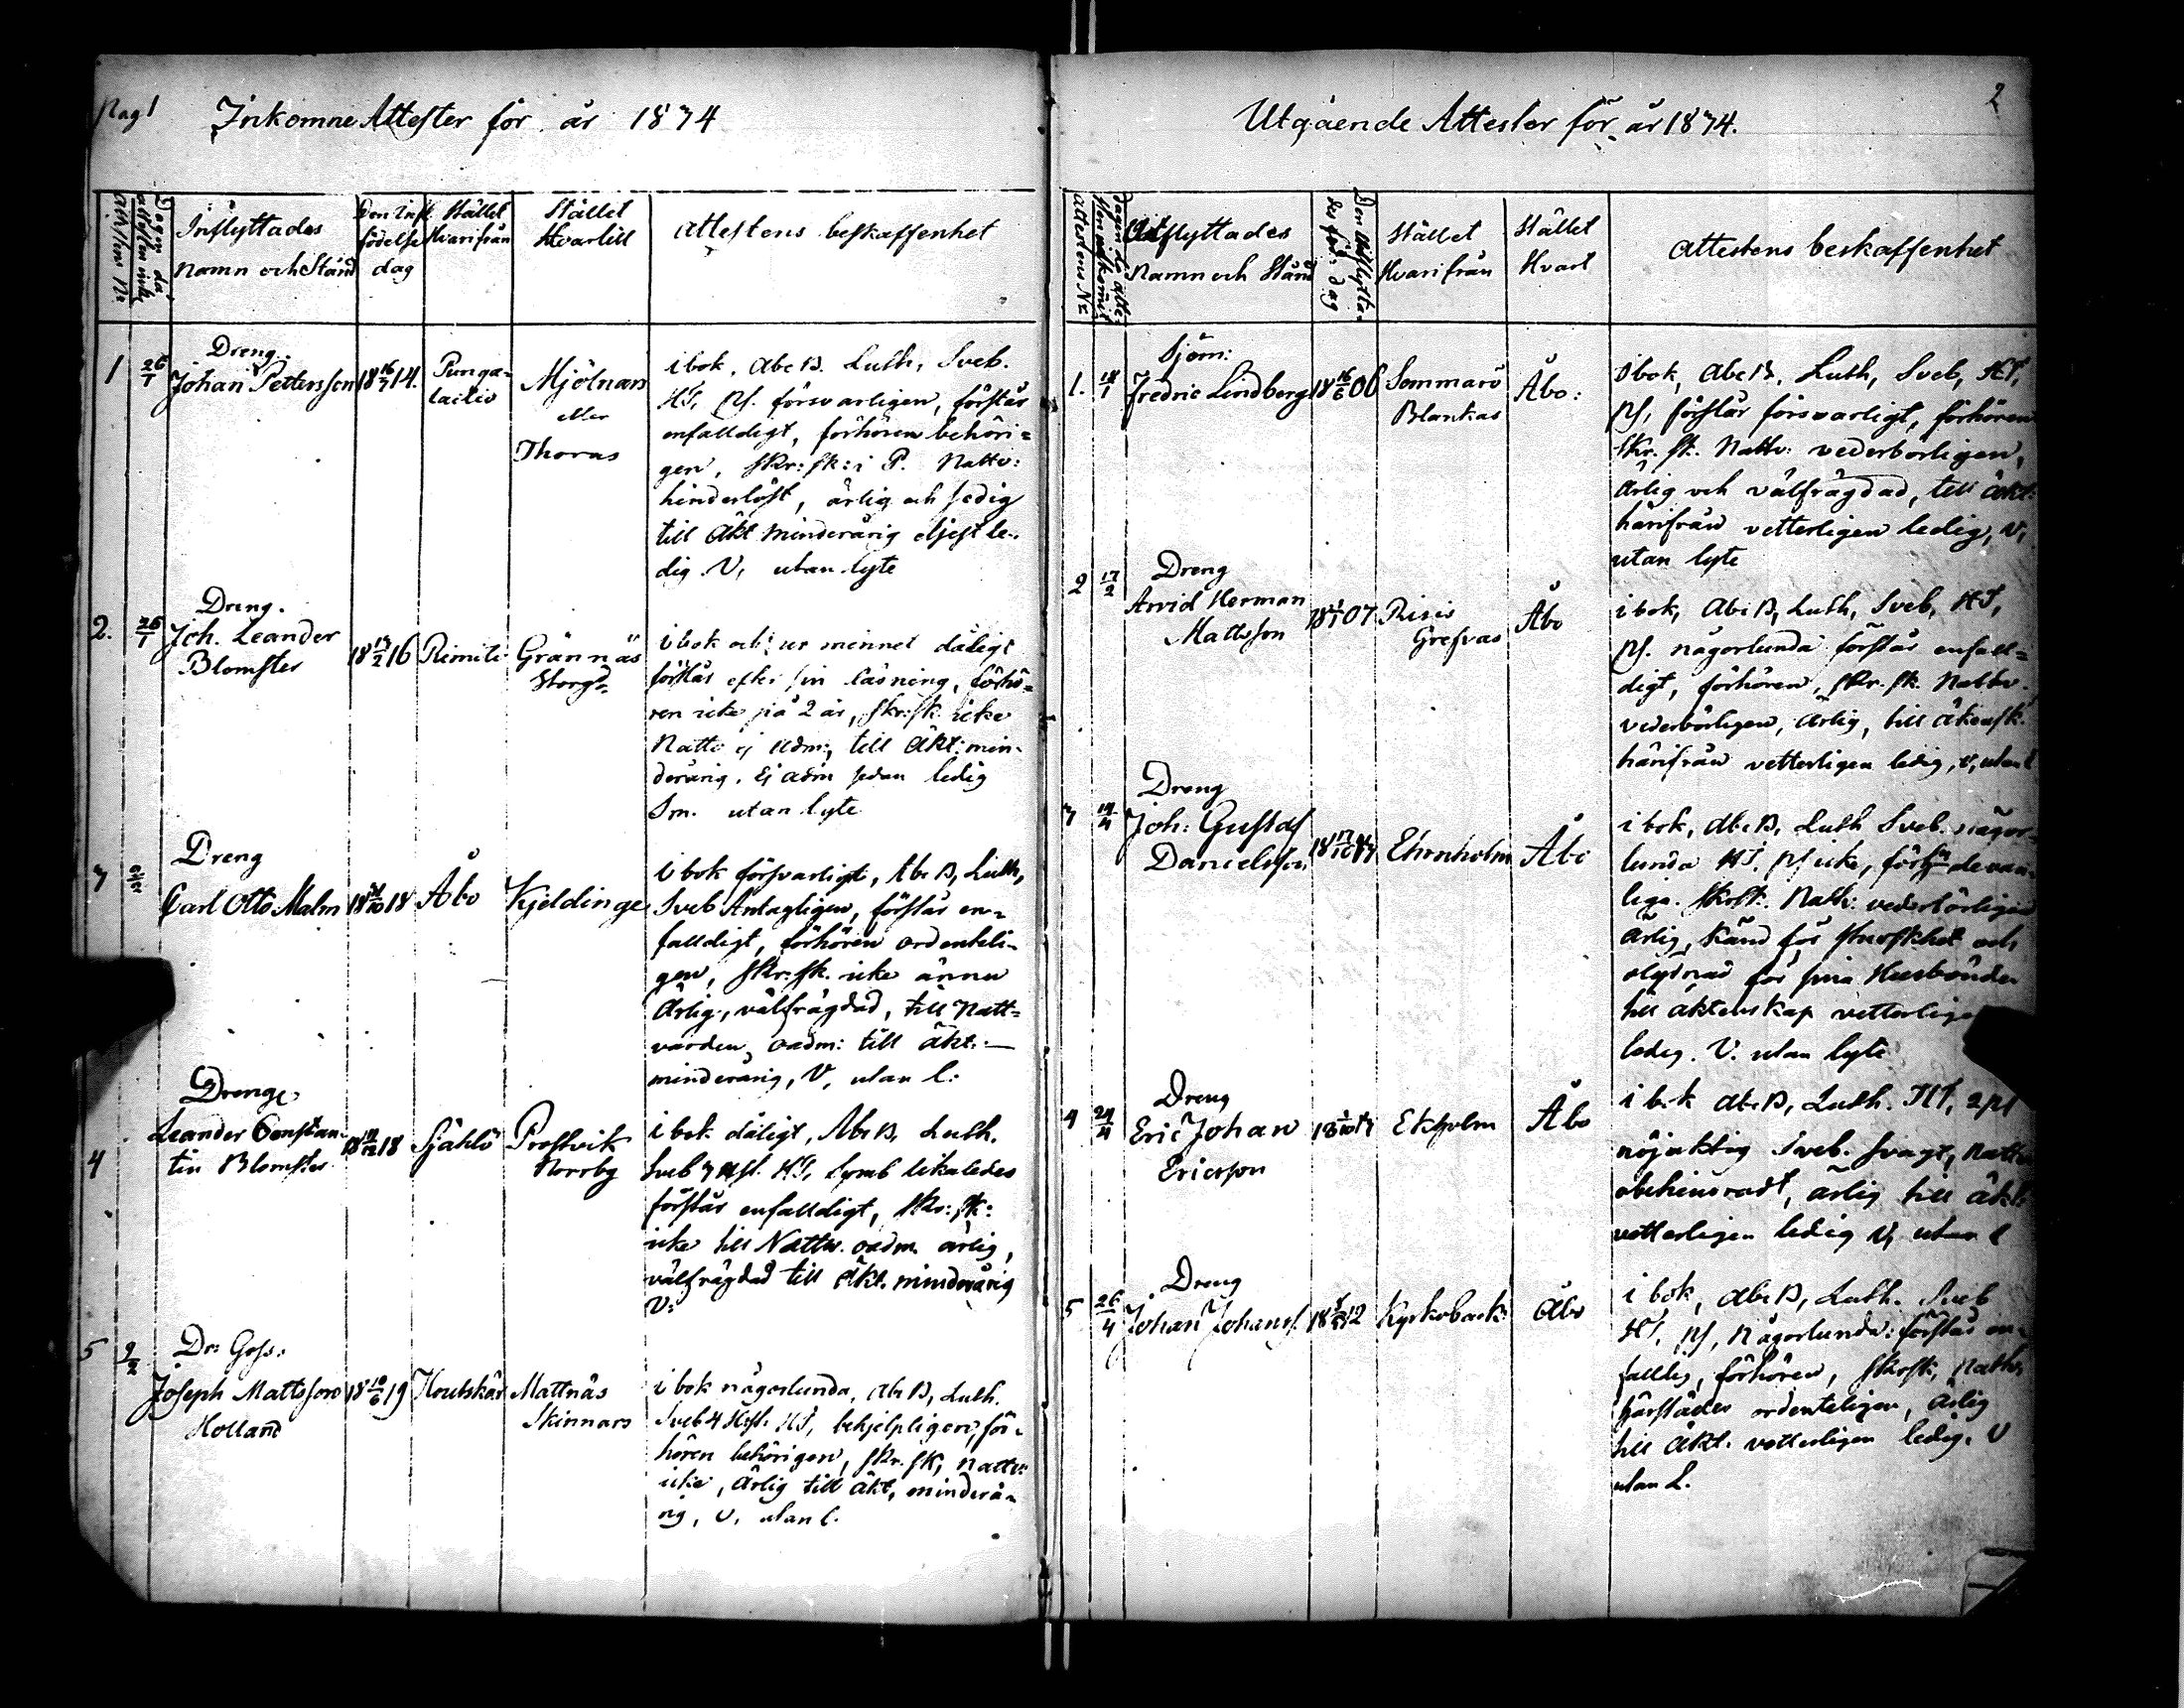 Pag 1
Inkomne Attester för år 1874
Attestens No
Dagen då
attesten ink
Inflyttades
Namn och Stånd
Den Infl.
födelse
dag
Stället
Hvarifrån
Stället
Hvartill
Attestens beskaffenhet
1
26/1
Dreng.
Johan Pettersson
18 16/7 14.
Punga-
laitio
Mjölnars
eller
Thoras
i bok, Abc B. Luth, Sveb.
HT, Ps. försvarligen, förstår
enfalldigt, förhören behöri=
gen, skr: sk: i P. Nattv:
hinderlöst, ärlig och sedig
till äkt minderårig eljest le-
dig. V, utan lyte
2.
26/1
Dreng.
Joh. Leander
Blomster
18 17/2 16
Rimito
Grännäs
Storgd.
i bok och ur minnet dåligt
förstår efter sin läsning, förhö=
ren icke på 2 år, skr: sk. icke
Nattv ej adm:, till äkt: min-
derårig. Ej adm sedan ledig
Sm. utan lyte
3
Dreng
Carl Otto Malm
18
18
Åbo
Kjeldinge
i bok försvarligt, Abc B, Luth,
Sveb Antagligen, förstår en=
falldigt, förhören ordenteli-
gen, skr: sk. icke ännu
Ärlig, välfrägdad, till Natt=
varden oadm: till äkt: —
minderårig, V, utan l:
4
Dreng
Leander Constan-
tin Blomster
18
18
Själö
Prostvik
Norrby
i bok dåligt, Abc B, Luth.
Sveb 3 Hfst. HT, Symb likaledes
förstår enfalldigt, skr: sk:
icke till Nattv. oadm. ärlig,
välfrägdad till äkt. minderårig
V:
5
9/2
Dr: Goss:
Joseph Mattsson
Holland
18 10/6 19
Houtskär
Mattnäs
Skinnars
i bok någorlunda, Abc B, Luth.
Sveb 4 Hfst. HT, behjelpligen, för-
hören behörigen, skr. sk, Nattv:
icke, Ärlig till äkt, minderå-
rig, V, utan l.
2
Utgående Attester för år 1874.
Attestens No
Dagen då atte-
sten utkommit
Utflyttades
Namn och Stånd
Den Utflytta-
des föd: dag
Stället
Hvarifrån
Stället
Hvart
Attestens beskaffenhet
1.
18/1
Sjöm:
Fredric Lindberg
18 16/6 06
Sommarö
Blankas
Åbo:
i bok, Abc B, Luth, Sveb, HT,
Ps, förstår försvarligt, förhören
skr. sk. Nattv: vederborligen,
Ärlig och välfrägdad, till äkt:
härifrån vetterligen ledig, V,
utan lyte
2
17/2
Dreng
Arvid Herman
Mattsson
07
Risis
Grefvas
Åbo
i bok, Abc B, Luth, Sveb, HT,
Ps. någorlunda förstår enfall=
digt, förhören, skr. sk. Nattv.
vederbörligen, Ärlig, till äktensk.
härifrån vetterligen ledig, V, utan l
3
14/4
Dreng
Joh: Gustaf
Danielsson
18
Ehrnholm
Åbo
i bok, Abc B, Luth Sveb. någor-
lunda HT. Ps icke, förhö de van-
liga. skrsk: Nattv: vederbörligen
Ärlig, Känd för stursKhet och
olydnad för sina Husbönder
till äktenskap vetterligen
ledig. V. utan lyte
4
24/4
Dreng
Eric Johan
Ericsson
18
Ekholm
Åbo
i bok Abc B, Luth. HT, 2 ps
nöjaktig Sveb. svagt, Nattv
obehindradt, ärlig till äkt
vetterligen ledig V, utan l
5
26/4
Dreng
Johan Johanss.
18
12
Kyrkoback
Åbo
i bok, Abc B, Luth. Sveb
HT, Ps, Någorlunda: förstår en-
falldig, förhören, skrsk, Nattv,
härstädes ordenteligen, Ärlig
till äkt. vetterligen ledig. V
utan L.